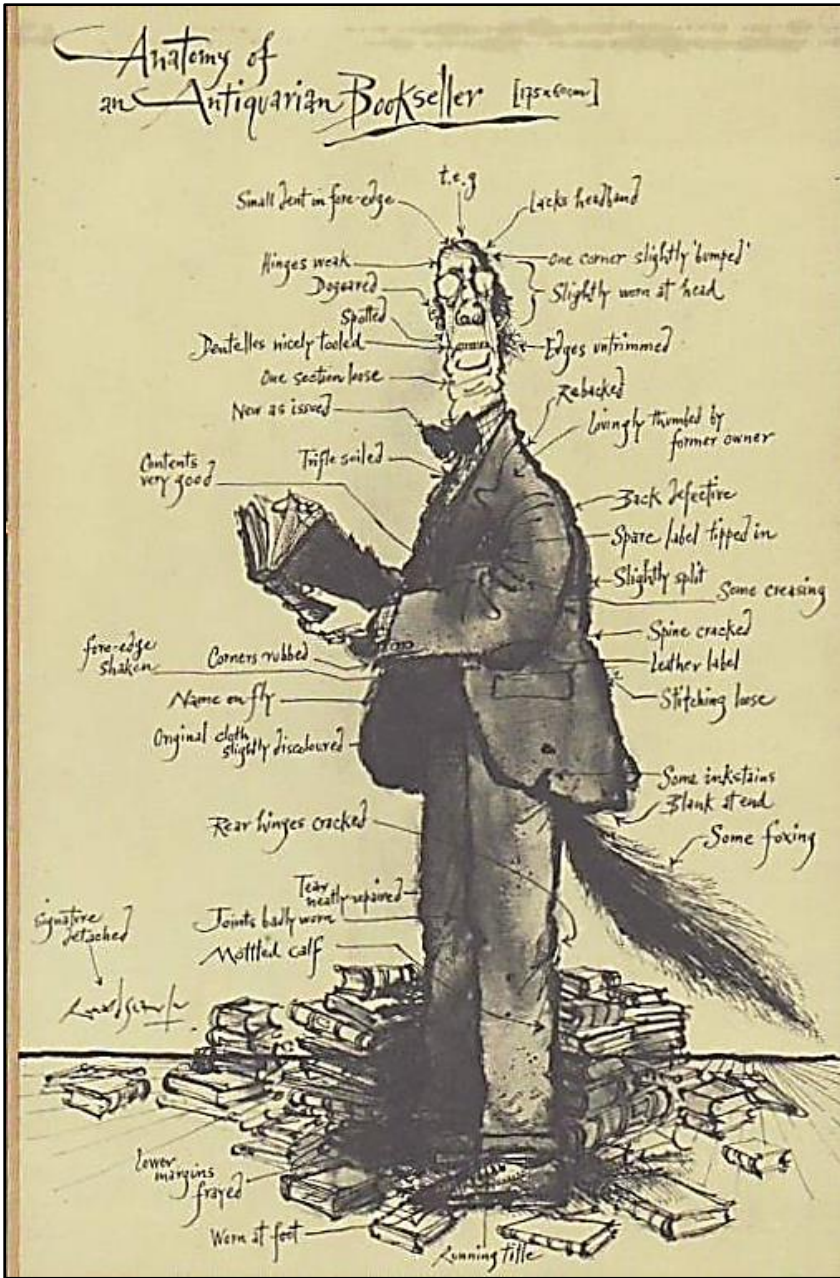 Anatomy of
an Antiquarian Bookseller [175x60cm]
t.e.g
Small dent in fore-edge
Lacks headband
Hinges weak
One corner slightly 'bumped'
Dogeared
Slightly worn at head
Spotted
Dentelles nicely tooled
Edges untrimmed
One section loose
Rebacked
New as issued
Lovingly thumbed by
former owner
Contents
very good
Trifle soiled
Back defective
Spare label tipped in
Slightly split
Some creasing
Spine cracked
fore-edge
shaken
Corners rubbed
Leather label
Name on fly
Stitching loose
Original cloth
slightly discoloured
Some inkstains
Blank at end
Rear hinges cracked
Some foxing
Tear
neatly repaired
Signature
detached
Joints badly worn
Mottled calf
Ronald Searle
lower
margins
frayed
Worn at foot
Running title